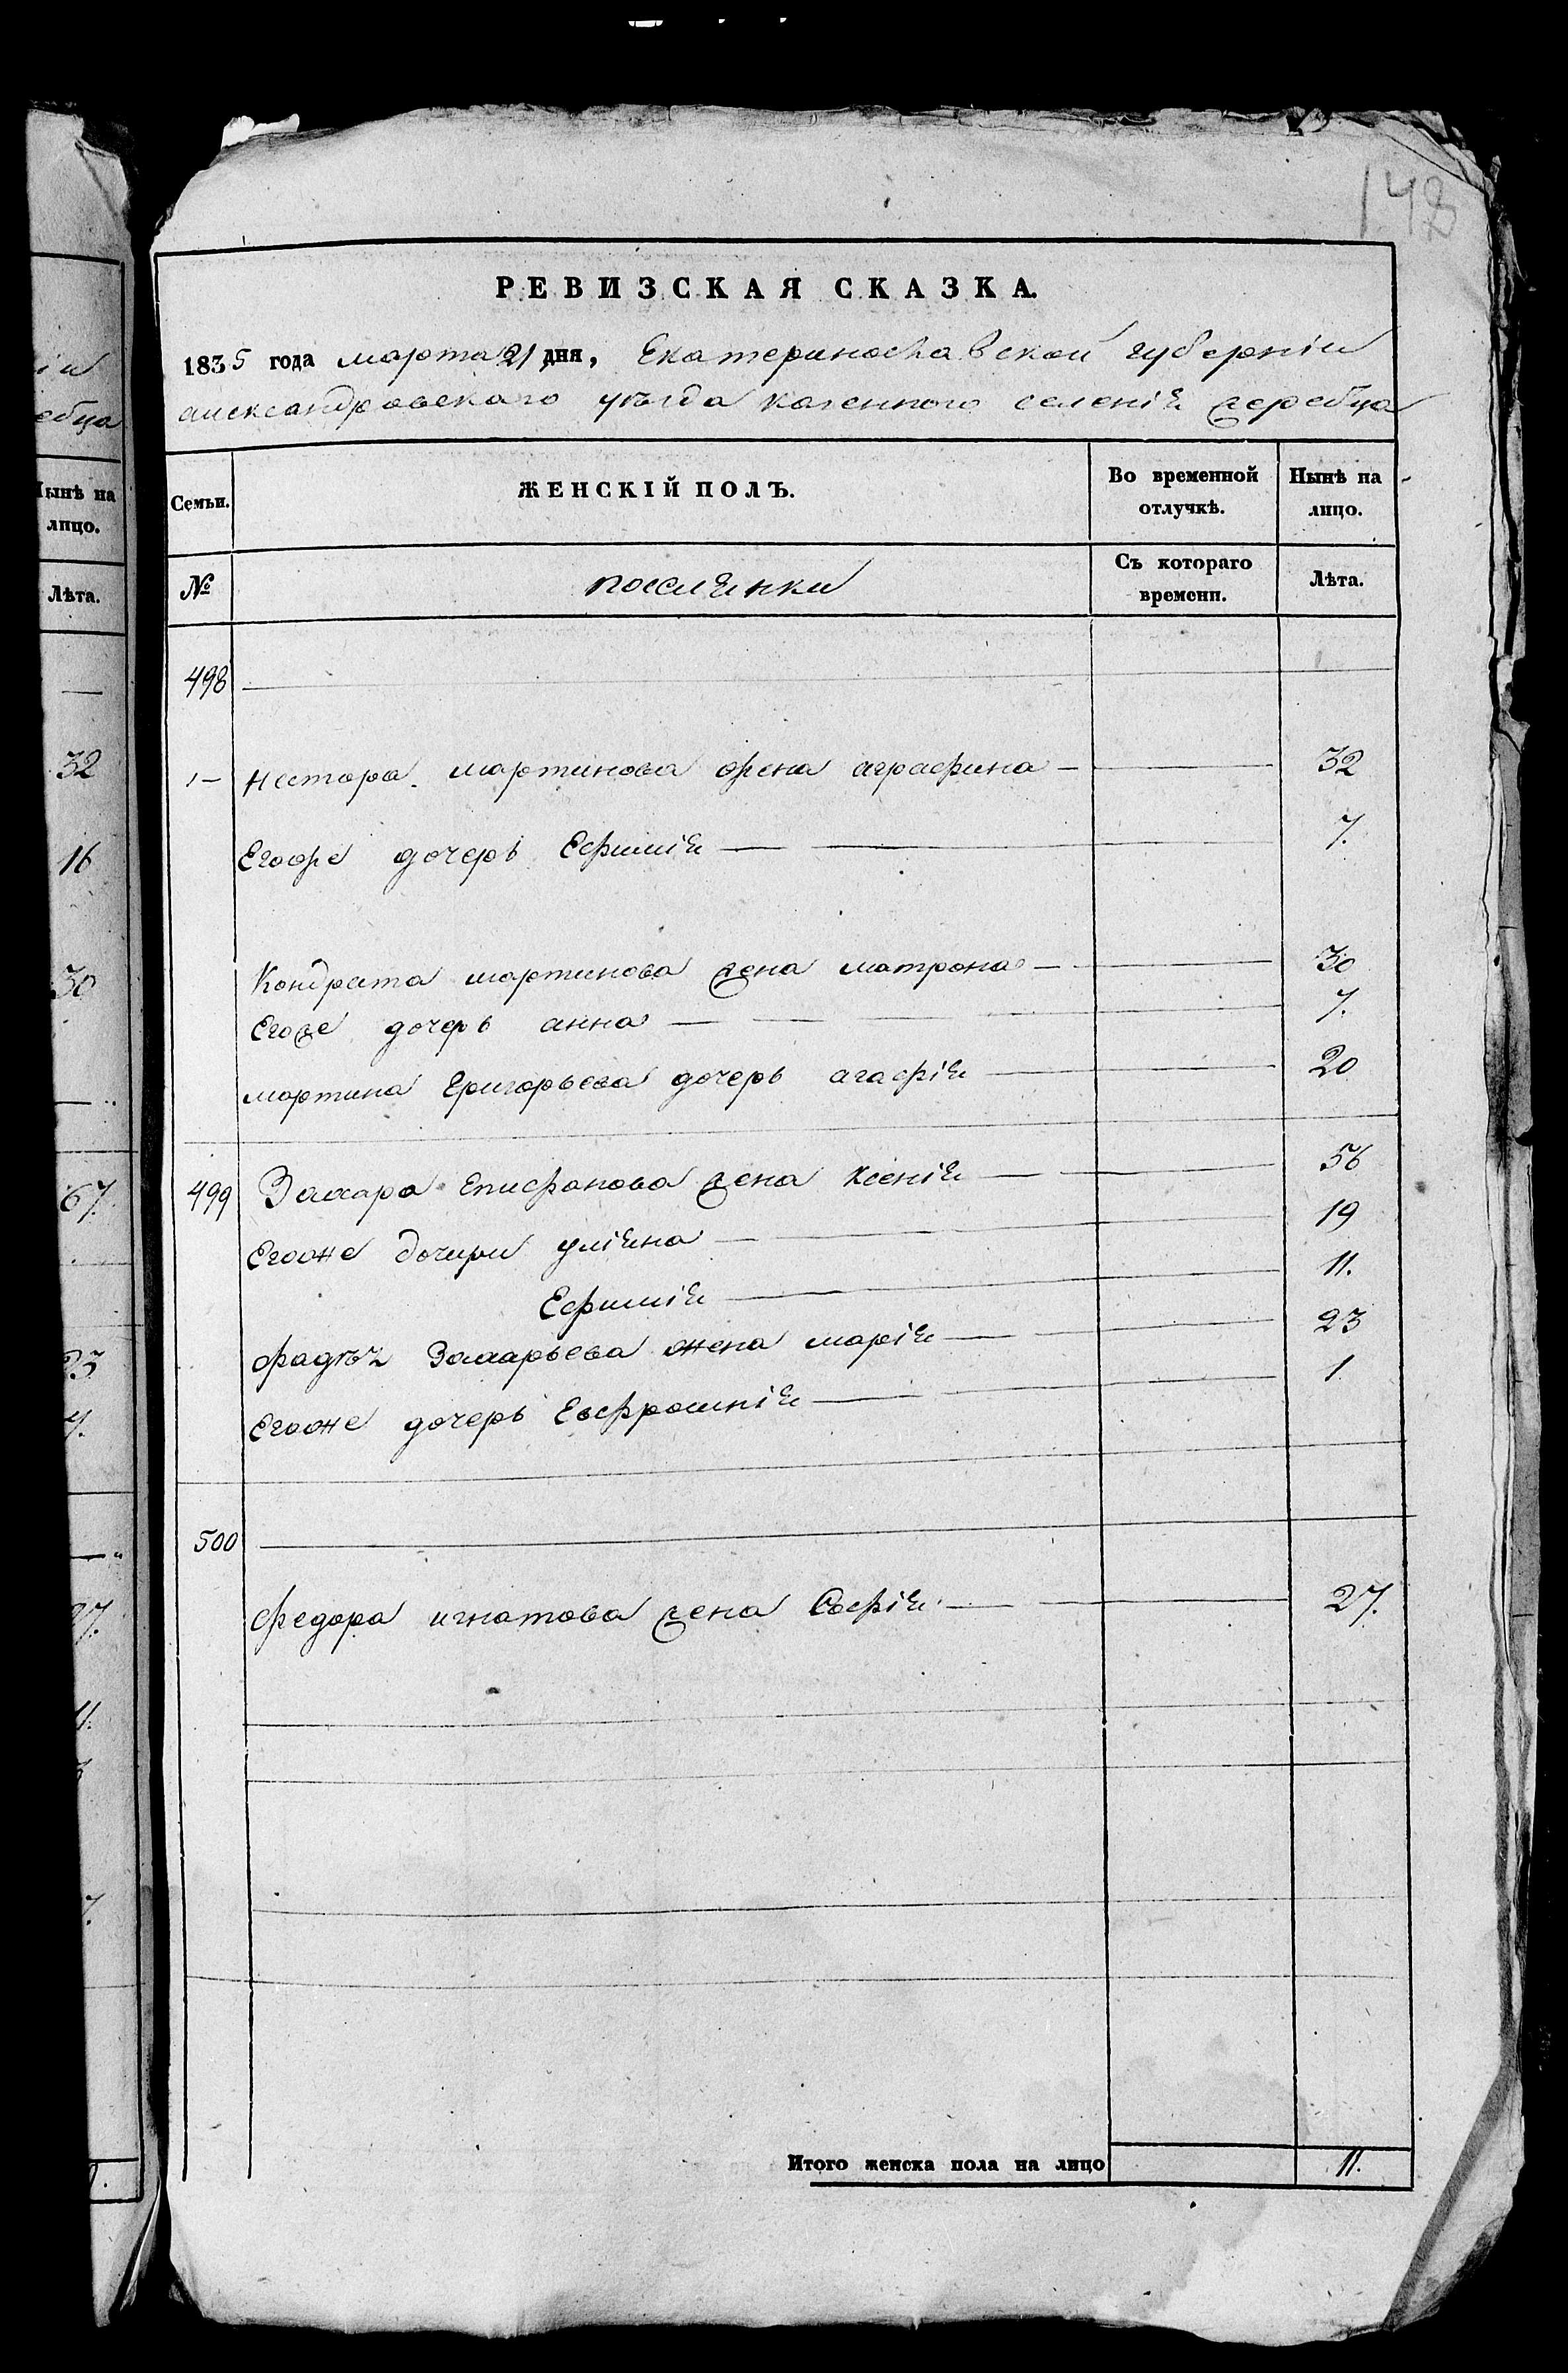 148
РЕВИЗСКАЯ СКАЗКА.
1835 года марта 21 дня, Екатеринославской губерніи
александровскаго уѣзда казенного селенія жеребца
Семьи. ЖЕНСКІЙ ПОЛЪ. Во временной отлучкѣ. Нынѣ на лицо.
№ поселянки Съ котораго времени. Лѣта.
498
1 — нестора мартинова жена аграфина — 32
Егоже дочерь Ефимія — 7.
Кондрата мартинова жена матрона — 30
Егоже дочерь анна — 7.
мартина Григорьева дочерь агафія — 20
499 Захара Епифанова жена Ксенія — 56
Егоже дочери уліяна — 19
Ефимія — 11.
Фадѣя Захарьева жена марія — 23
Егоже дочерь Евфросинія — 1
500
Федора игнатова жена Софія — 27.
Итого женска пола на лицо 11.
ебца
Нынѣ на
лицо.
Лѣта.
32
16
30
67.